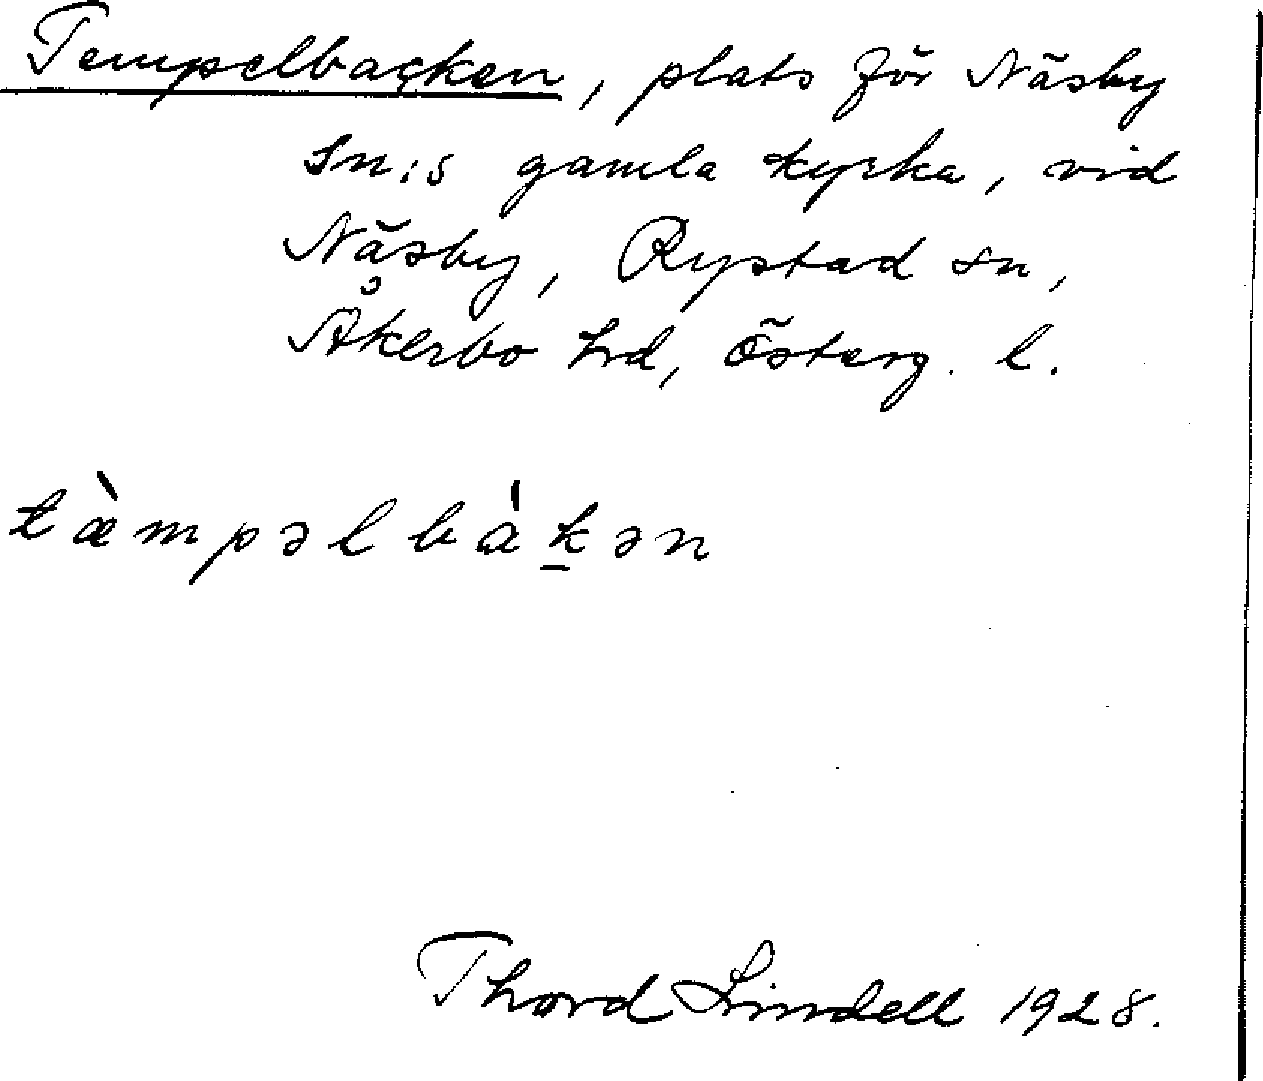 Tempelbacken, plats för Näsby
sn:s gamla kyrka, vid
Näsby, Rystad sn,
Åkerbo hd, Österg. l.
tæ̀mpəlbàk̲ən
Thord Lindell 1928.